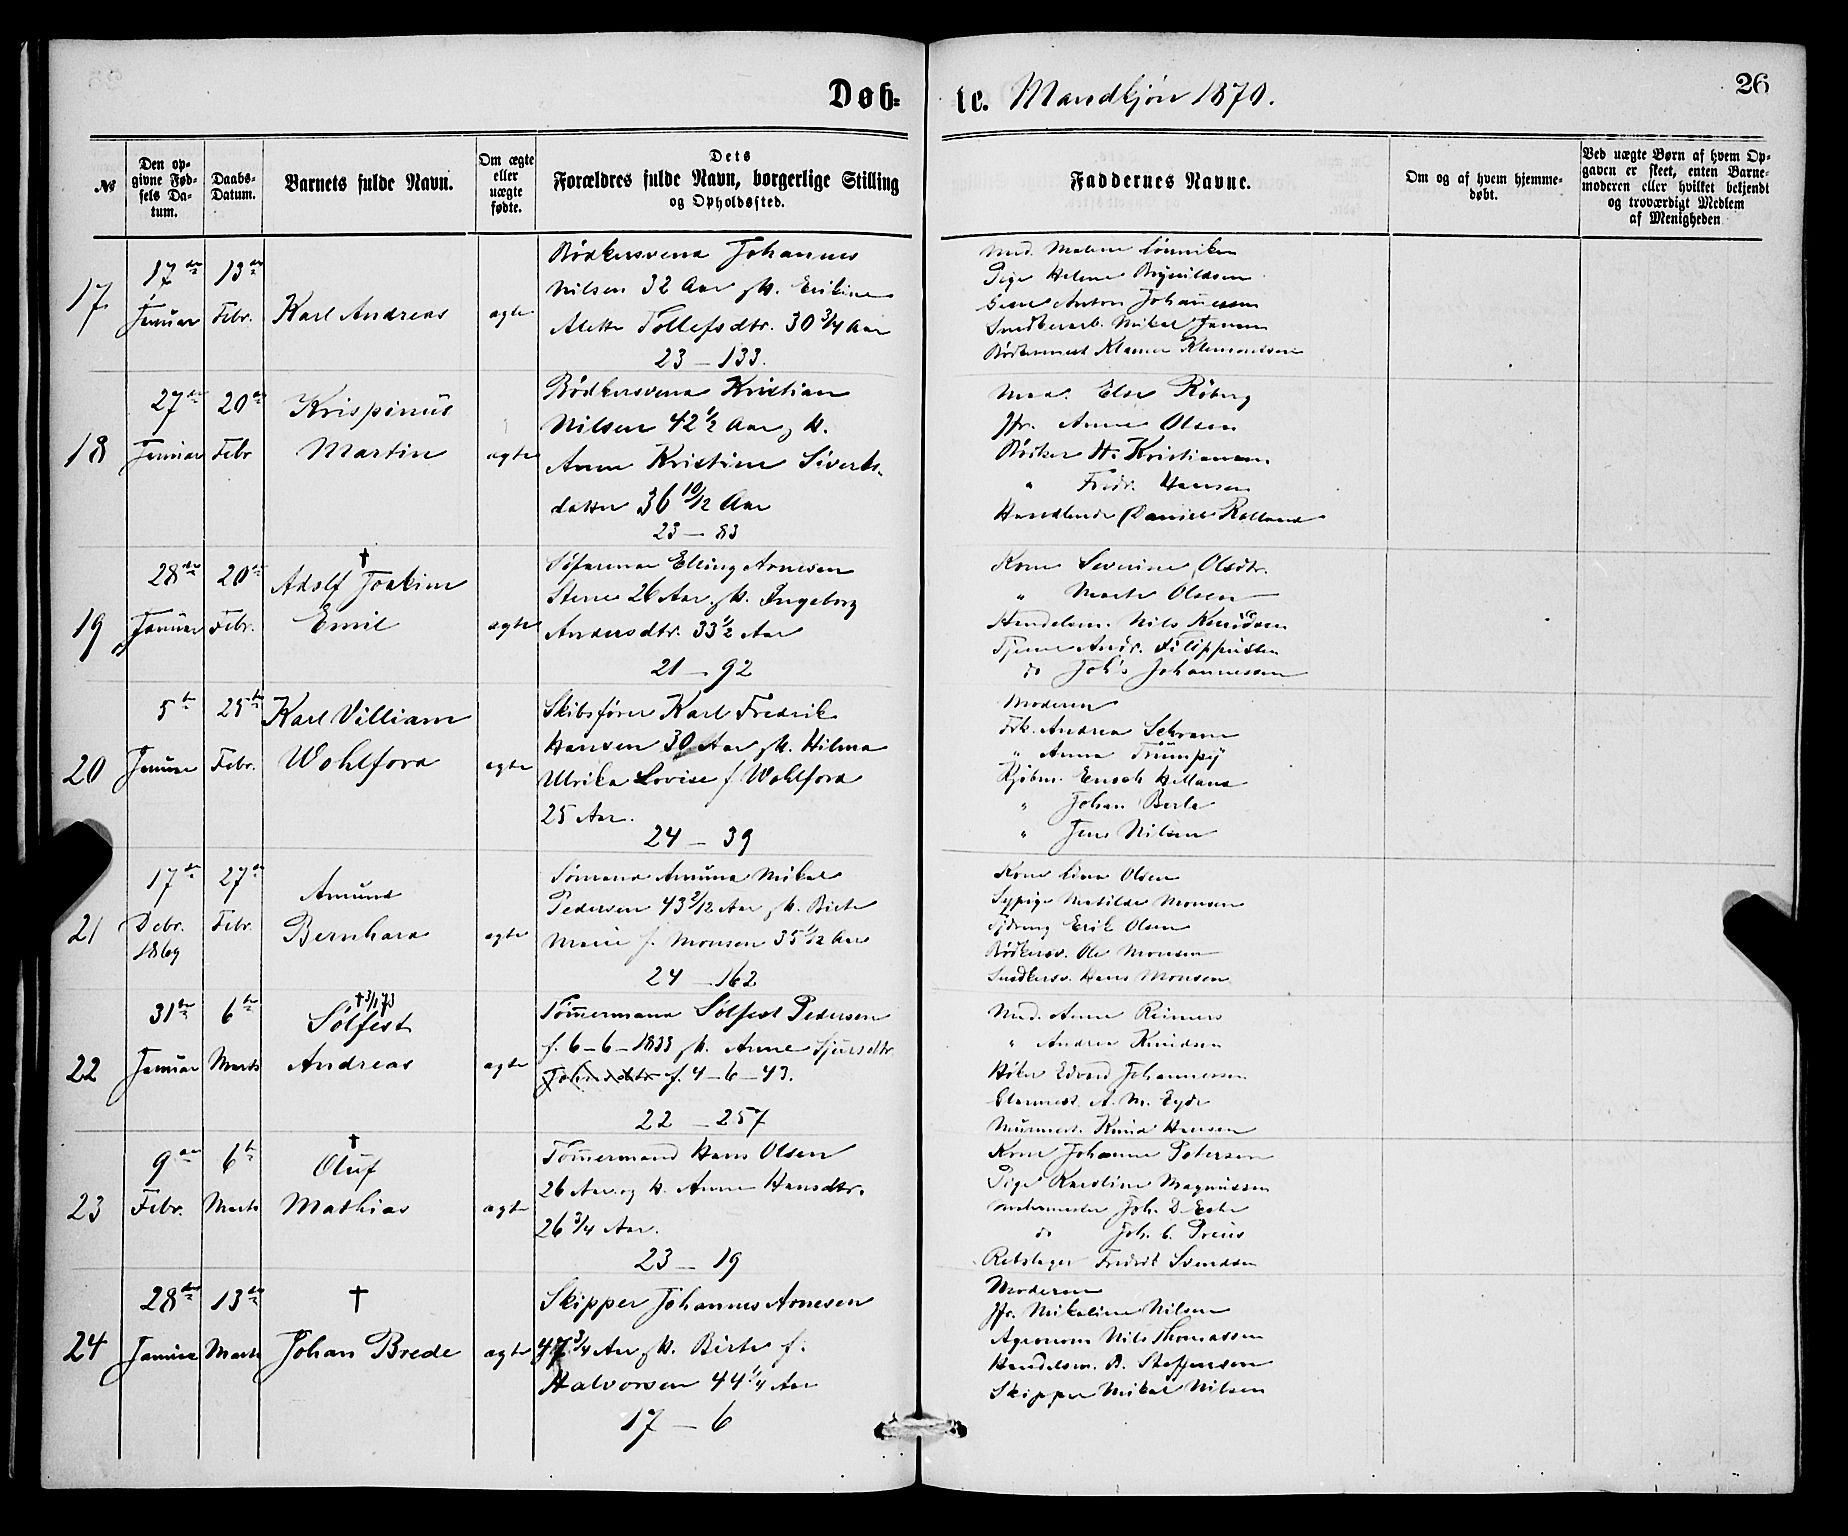 Døb-
te. Mandkjøn 1870.
26
№
Den op-
givne Fød-
sels Da-
tum.
Daabs-
Datum.
Barnets fulde Navn.
Om ægte
eller
uægte
fødte.
Dets
Forældres fulde Navn, borgerlige Stilling
og Opholdssted.
Faddernes Navne.
Om og af hvem hjemme-
døbt.
Ved uægte Børn af hvem Op-
gaven er skeet, enten Barne-
moderen eller hvilket bekjendt
og troværdigt Medlem
af Menigheden
17
17de
Januar
13de
Febr.
Karl Andreas
ægte
Bødkersvend Johannes
Nilsen 32 Aar, H. Erikine
Alette Tollefsdtr. 30 3/4 Aar
23 – 133.
Mad. Malene
Pige Helene Brynildsen
Anton Johannesen
Snedkerarb. Mikal Jansen
18
27de
Januar
20de
Febr
Krispinus
Martin
ægte
Bødkersvend Kristian
Nilsen 42 1/2 Aar, H.
Anne Kristine Siverts-
datter 36 10/12 Aar
23 – 83
Mad. Else Røberg
Jfr. Anne Olsen
Bødker H. Kristiansen
" Fredr. Hansen
Handlende Daniel Rolland
19
28de
Januar
20de
Febr.
†
Adolf Joakim
Emil
ægte
Søfarende Elling Arnesen
Stene 26 Aar, H. Ingeborg
Andersdtr. 33 1/2 Aar
21 – 92
Kone Severine Olsdtr.
" Marte Olsen
Handelsm. Nils Knudsen
Tjener Andr. Filippusen
do Johs Johannesen
20
5te
Januar
25te
Febr.
Karl Villiam
Wohlford
ægte
Skibsfører Karl Fredrik
Hansen 30 Aar, H. Hilma
Ulrika Lovise f. Wohlford
25 Aar.
24 – 39
Moderen
Frk. Andrea Schram
" Anna Trümpy
Kjøbm. Enoch Helland
" Johan Berle
" Jens Nilsen
21
17de
Debr.
1869
27de
Febr.
Amund
Bernhard
ægte
Sømand Amund Mikal
Pedersen 43 2/12 Aar, H. Birte
Marie f. Monsen 35 1/12 Aar
24 – 162
Kone Lina Olsen
Sypige Matilde Monsen
Erik Olsen
Bødkersv. Ole Monsen
Snedkersv. Hans Monsen
22
31te
Januar
6te
Marts
† 3/1 73
Sølfest
Andreas
ægte
Tømmermand Sølfest Pedersen
f. 6–6–1833, H. Anne Sjursdtr.
Johnsdtr. f. 4–6–43.
22 – 257
Mad. Anne Reimers
" Andrea Knudsen
Høker Edvard Johannesen
Glarmest. A. M. Eyde
Murmest. Knud Hansen
23
9de
Febr.
6te
Marts
†
Oluf
Mathias
ægte
Tømmermand Hans Olsen
26 Aar og H. Anne Hansdtr.
26 3/4 Aar.
23 – 19
Kone Johanne Petersen
Pige Karoline Magnussen
Joh. D.
do Joh. C. Preus
Rebslager Fredrik Svendsen
24
28de
Januar
13de
Marts
†
Johan Brede
ægte
Skipper Johannes Arnesen
47 3/4 Aar, H. Birte f.
Halvorsen 44 1/4 Aar
17 – 6
Moderen
Jfr. Mikaline Nilsen
Agronom Nils Thomassen
Handelsm. B. Steffensen
Skipper Mikal Nilsen